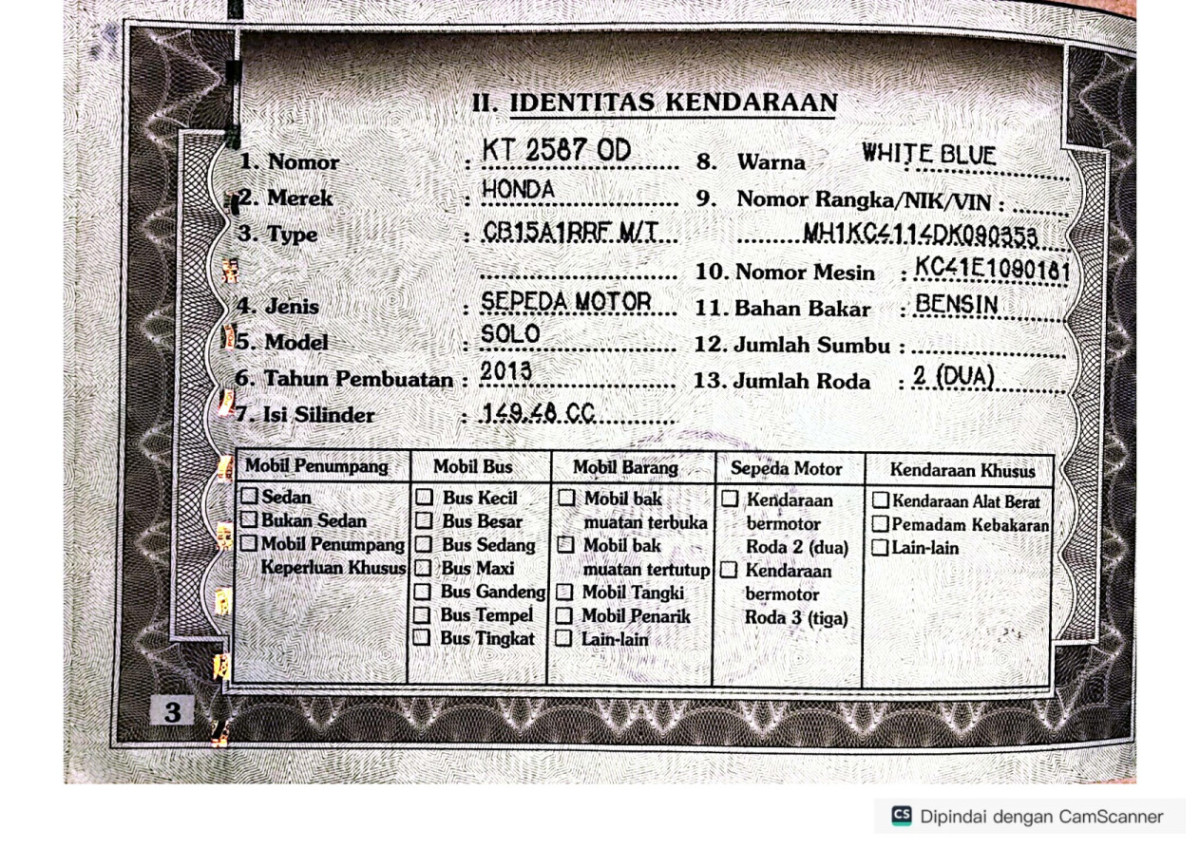 II. IDENTITAS KENDARAAN
1. Nomor : KT 2587 OD
2. Merek : HONDA
3. Type : CB15A1RRF M/T
4. Jenis : SEPEDA MOTOR
5. Model : SOLO
6. Tahun Pembuatan : 2013
7. Isi Silinder : 149.48 CC
8. Warna WHITE BLUE
9. Nomor Rangka/NIK/VIN :
MH1KC4114DK090353
10. Nomor Mesin : KC41E1090181
11. Bahan Bakar : BENSIN
12. Jumlah Sumbu :
13. Jumlah Roda : 2 (DUA)
Mobil Penumpang
Sedan
Bukan Sedan
Mobil Penumpang
Keperluan Khusus
Mobil Bus
Bus Kecil
Bus Besar
Bus Sedang
Bus Maxi
Bus Gandeng
Bus Tempel
Bus Tingkat
Mobil Barang
Mobil bak
muatan terbuka
Mobil bak
muatan tertutup
Mobil Tangki
Mobil Penarik
Lain-lain
Sepeda Motor
Kendaraan
bermotor
Roda 2 (dua)
Kendaraan
bermotor
Roda 3 (tiga)
Kendaraan Khusus
Kendaraan Alat Berat
Pemadam Kebakaran
Lain-lain
3
CS Dipindai dengan CamScanner